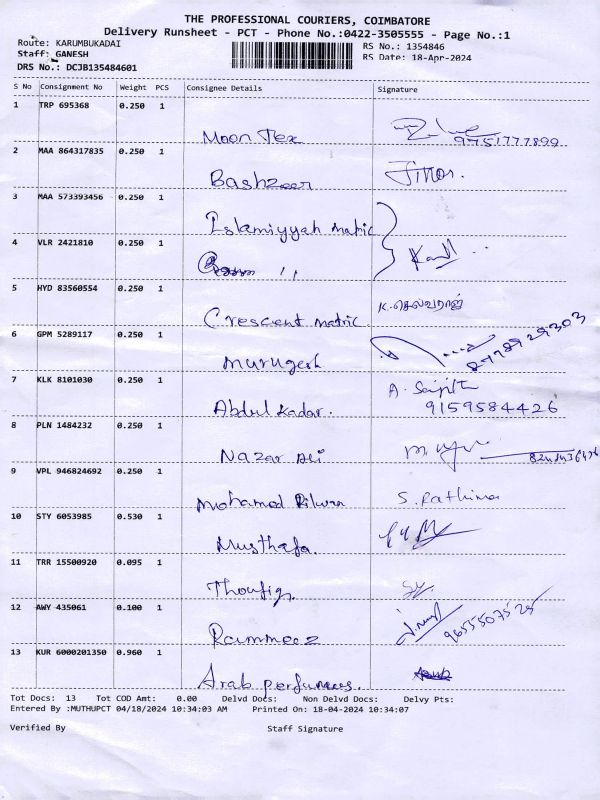 THE PROFESSIONAL COURIERS, COIMBATORE
Delivery Runsheet - PCT - Phone No.:0422-3505555 - Page No.:1
Route: KARUMBUKADAI
RS No.: 1354846
Staff: GANESH
RS Date: 18-Apr-2024
DRS No.: DCJB135484601
S No Consignment No Weight PCS Consignee Details Signature
1 TRP 695368 0.250 1
Moon Tex 9751777899
2 MAA 864317835 0.250 1
Basheer
3 MAA 573393456 0.250 1
Islamiyyah matric
4 VLR 2421810 0.250 1
,,
5 HYD 83560554 0.250 1
Crescent matric. K.செல்வராஜ்
6 GPM 5289117 0.250 1
murugesh
7 KLK 8101030 0.250 1
Abdul Kadar. 9159584426
8 PLN 1484232 0.250 1
Nazar Ali
9 VPL 946824692 0.250 1
Mohamod Rilwan S. Rathima
10 STY 6053985 0.530 1
Musthafa.
11 TRR 15500920 0.095 1
Thoufiq,
12 AWY 435061 0.100 1
Rammeez 9655507525
13 KUR 6000201350 0.960 1
Arab perfumes.
Tot Docs: 13 Tot COD Amt: 0.00 Delvd Docs: Non Delvd Docs: Delvy Pts:
Entered By :MUTHUPCT 04/18/2024 10:34:03 AM Printed On: 18-04-2024 10:34:07
Verified By Staff Signature